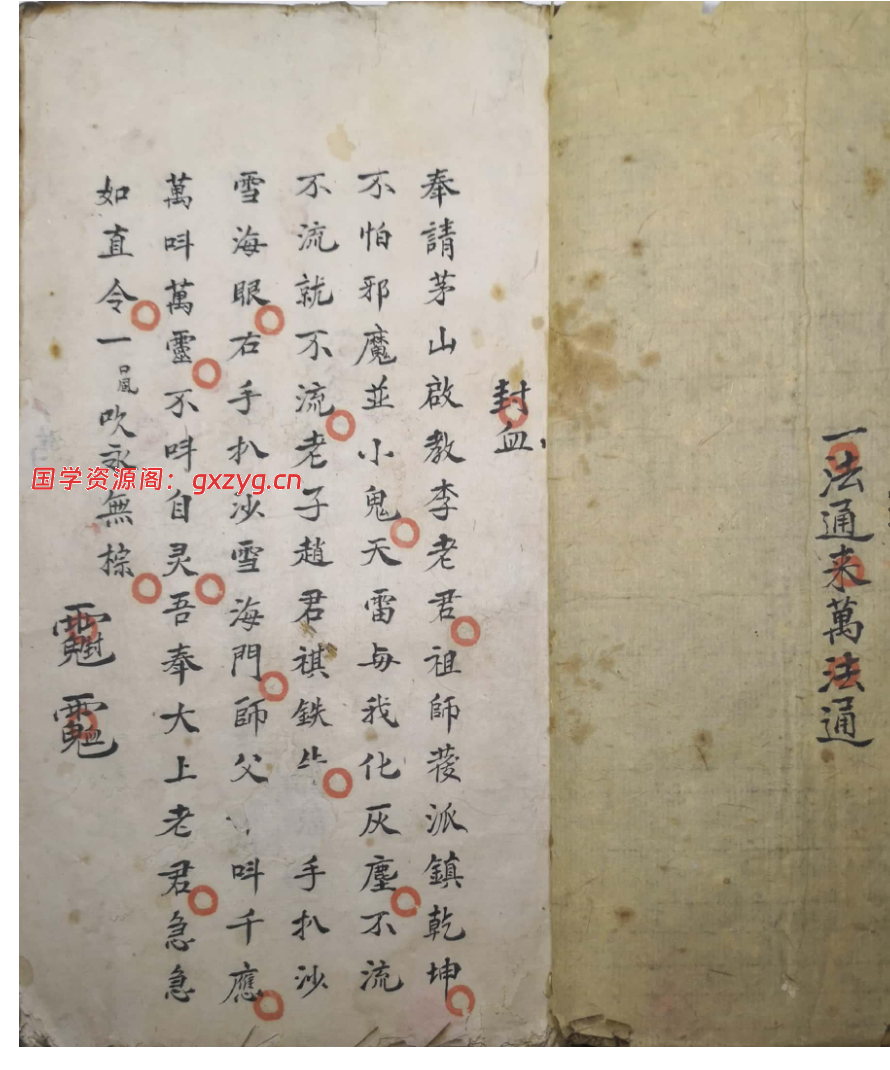 一法通来萬法通
封血
奉請茅山啟教李老君祖師蓌派鎮乾坤
不怕邪魔並小鬼天雷与我化灰塵不流
不流就不流老子趙君祺鉄 手扒沙
雪海眼右手扒沙雪海門師父 呌千應
萬呌萬靈不呌自灵吾奉大上老君急急
如直令一口風吹永無棕
国学资源阁：gxzyg.cn